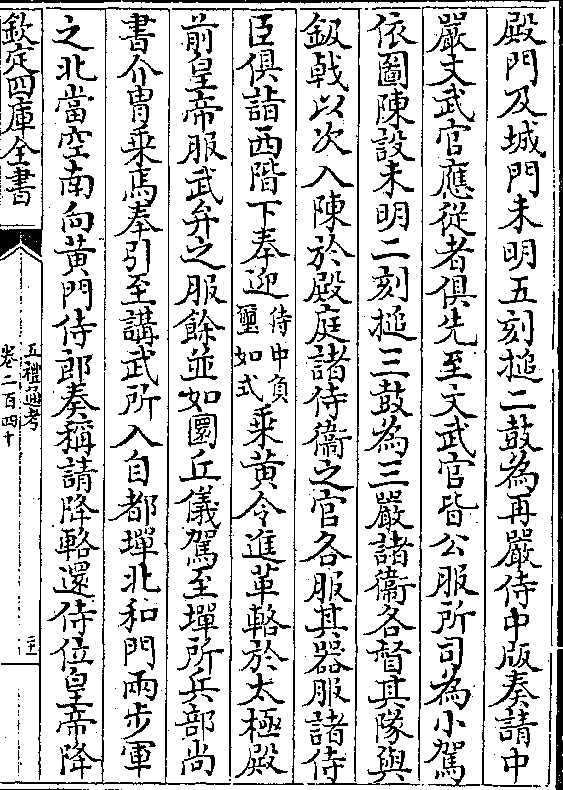 殿門及城門未明五刻搥二鼓為再嚴侍中版奏請中
嚴文武官應從者俱先至文武官皆公服所司為小駕
依圖陳設未明二刻搥三鼓為三嚴諸衞各督其隊與
鈒㦸以次入陳於殿庭諸侍衞之官各服其器服諸侍
臣俱詣西階下奉迎侍中負璽如式乗黄令進革輅於太極殿
前皇帝服武弁之服餘並如圜丘儀駕至墠所兵部尚
書介胄乗馬奉引至講武所入自都墠北和門兩步軍
之北當空南向黄門侍郎奏稱請降輅還侍位皇帝降
欽定四庫全書
五禮通考
卷二百四十